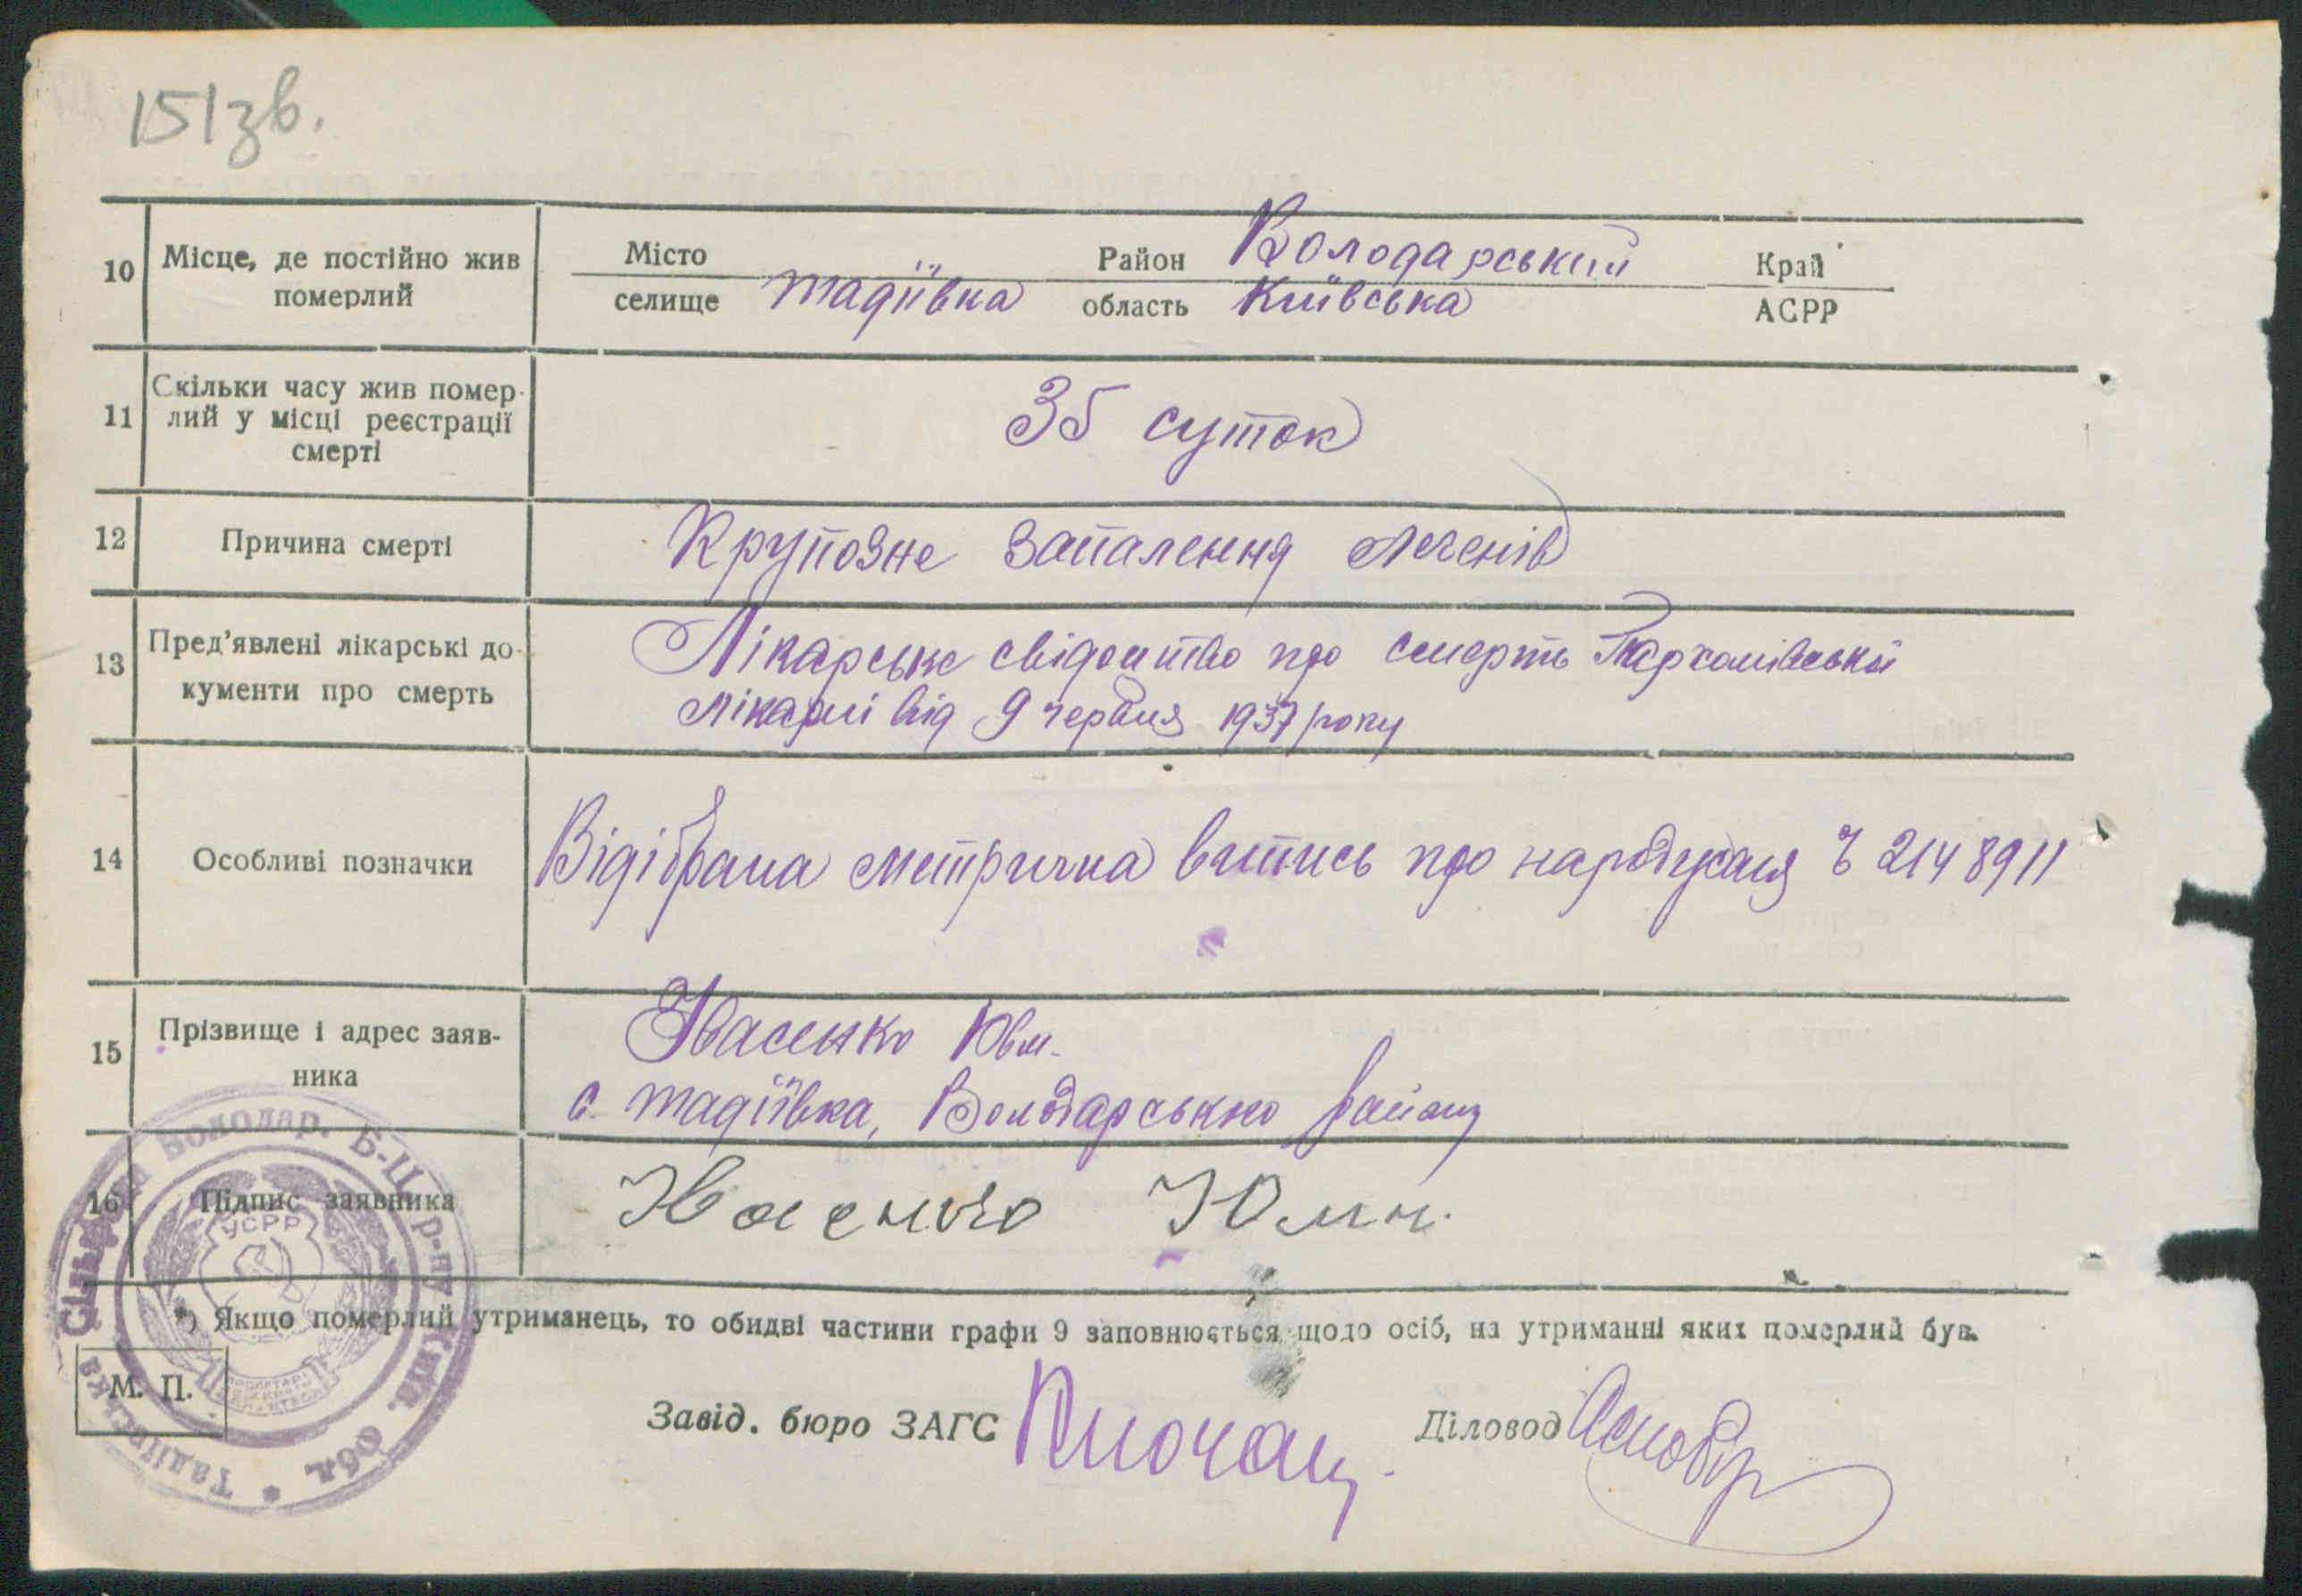 151 зв.
10 Місце, де постійно жив
померлий
Місто
селище Тадіївка
Район Володарський
область Київська
Край
АСРР
11 Скільки часу жив помер-
лий у місці реєстрації
смерті
35 суток
12 Причина смерті
Крупозне запалення легенів
13 Пред'явлені лікарські до-
кументи про смерть
Лікарське свідоцтво про смерть Пархомівської
лікарні від 9 червня 1937 року
14 Особливі позначки
Відібрана метрична випись про народження Ч 2148911
15 Прізвище і адрес заяв-
ника
Квасенко
с. Тадіївка, Володарського району
16 Підпис заявника
*) Якщо померлий утриманець, то обидві частини графи 9 заповнюється щодо осіб, на утриманні яких померлий був.
М. П.
Завід. бюро ЗАГС
Діловод
Тадіївська Сільрада Володар. Б-Ц р-ну Київ. Обл.
УСРР